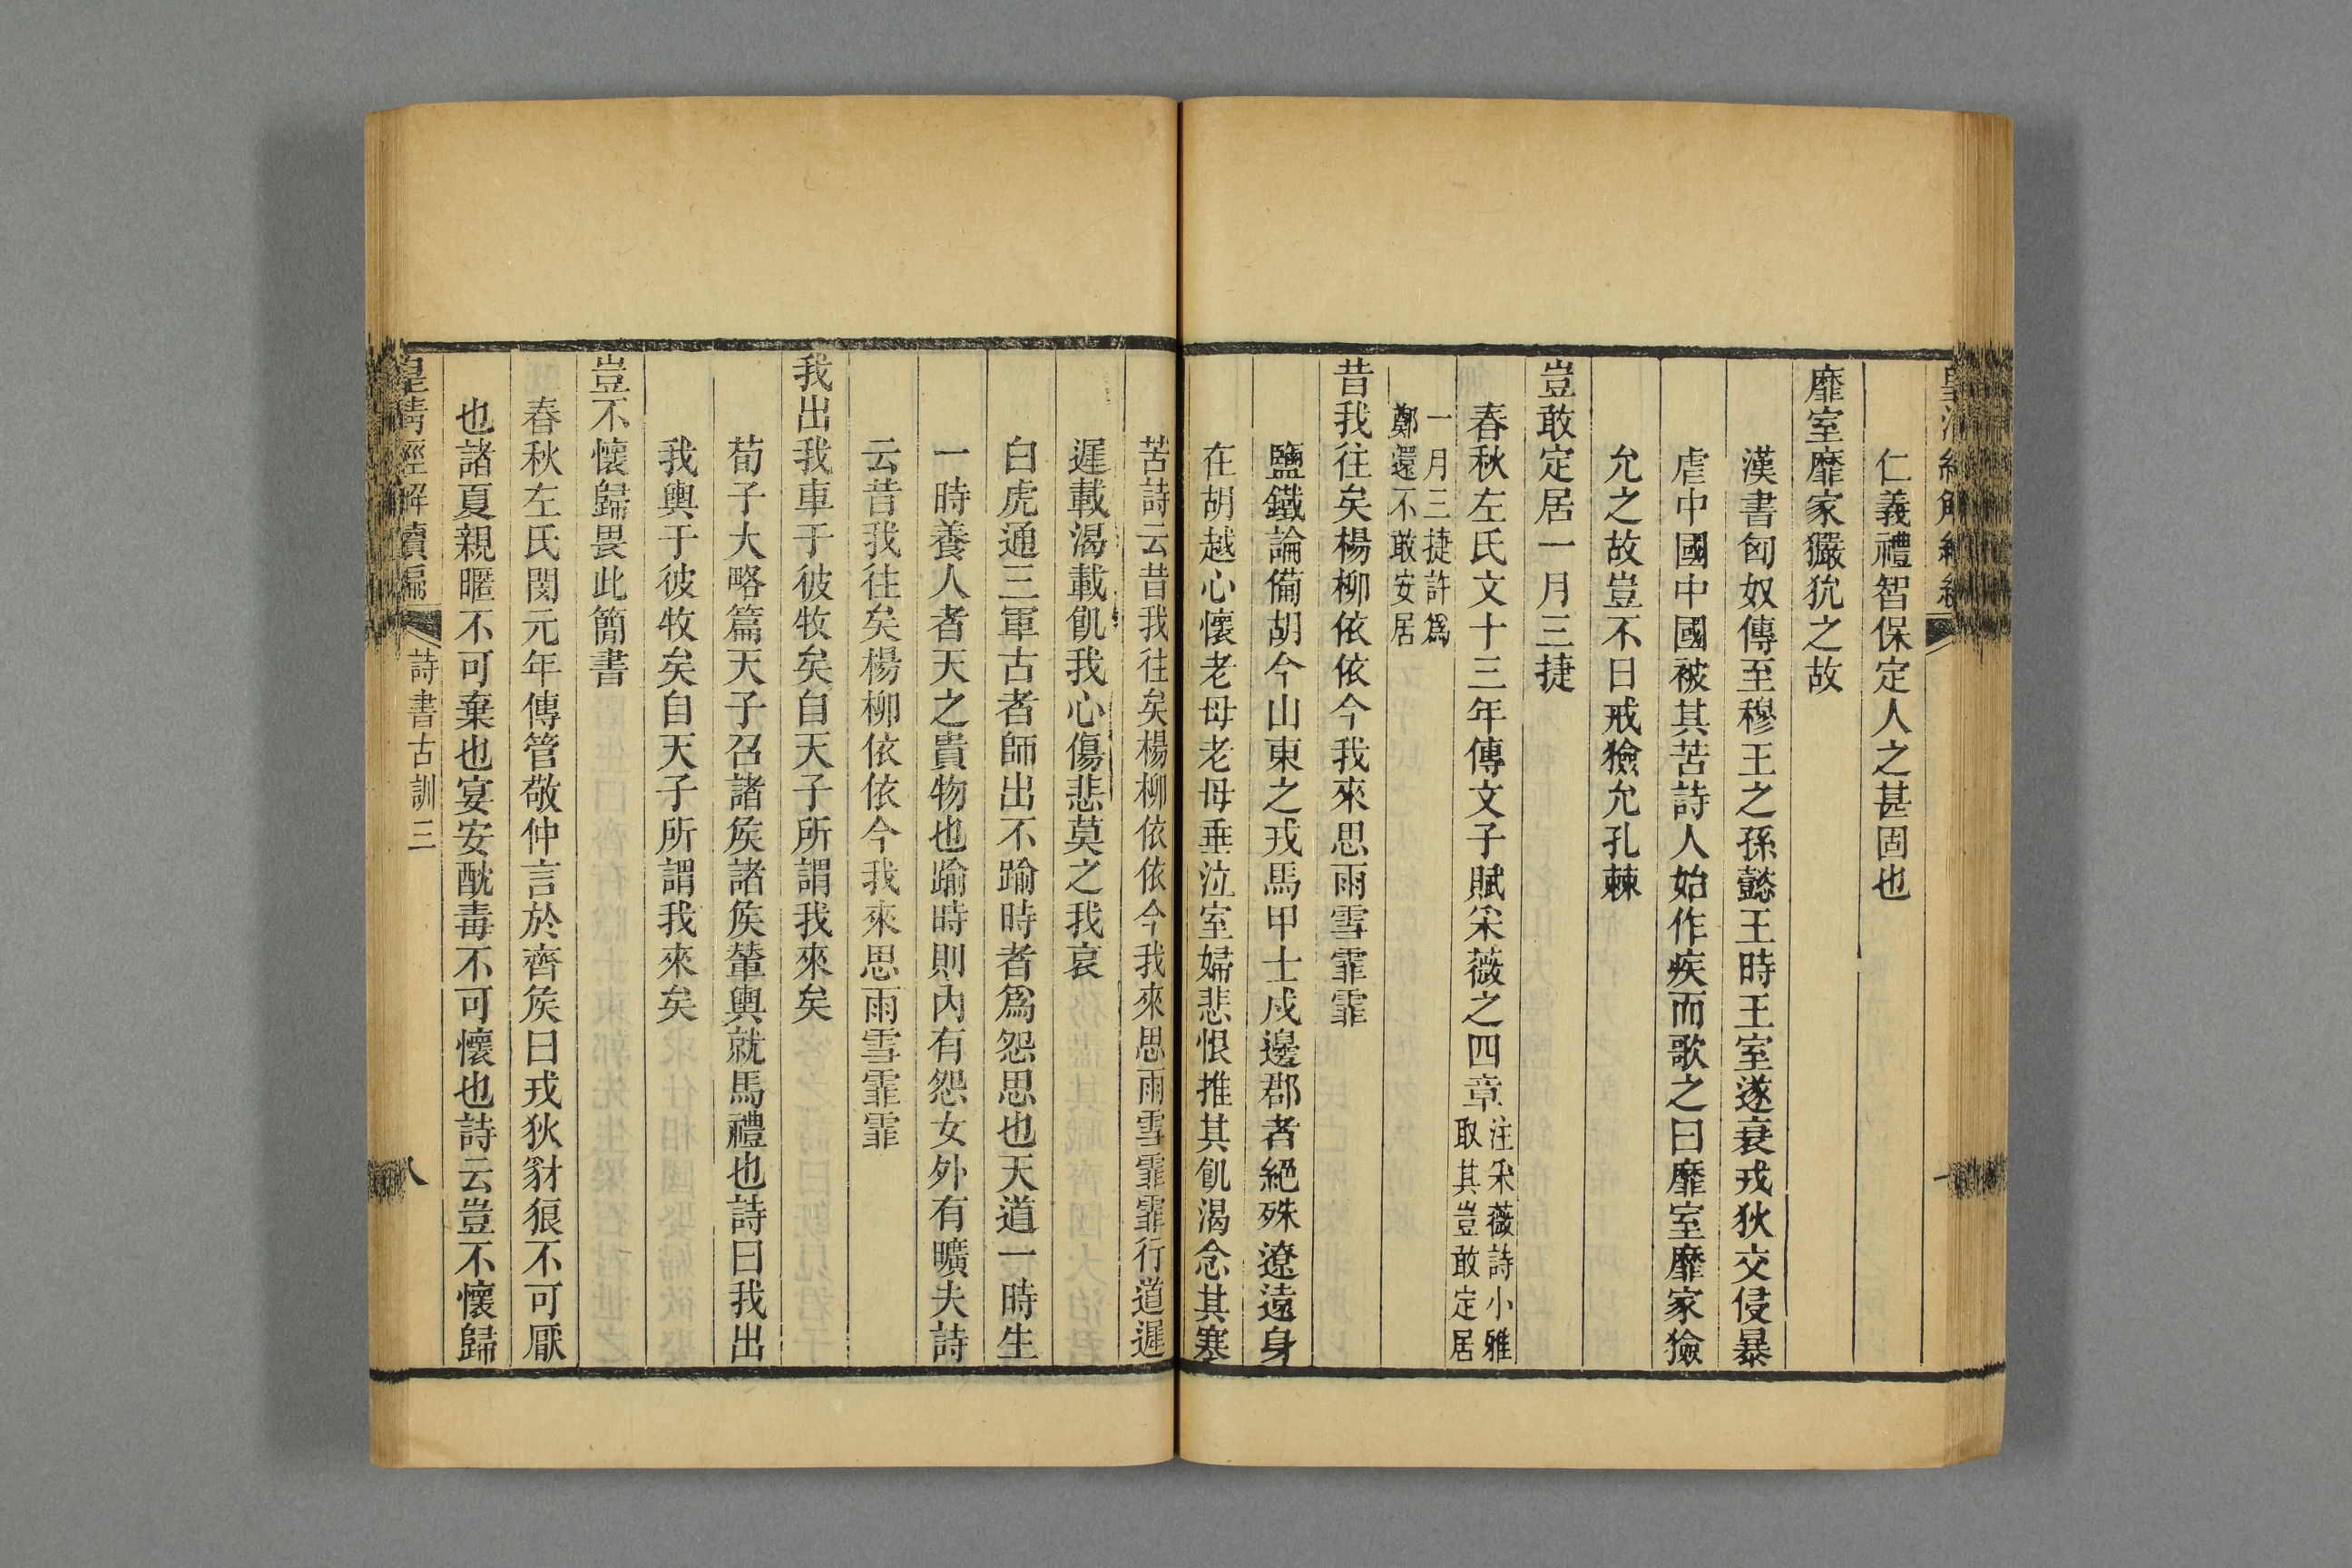 仁義禮智保定人之甚固也
靡室靡家玁狁之故
漢書匈奴傳至穆王之孫懿王時王室遂衰戎狄交侵暴
虐中國中國被其苦詩人始作疾而歌之曰靡室靡家獫
允之故豈不日戒獫允孔棘
豈敢定居一月三捷
春秋左氏文十三年傳文子賦采薇之四章注采薇詩小雅取其豈敢定居
一月三捷許爲鄭還不敢安居
昔我往矣楊柳依依今我來思雨雪霏霏
鹽鐵論備胡今山東之戎馬甲士戍邊郡者絕殊遼遠身
在胡越心懷老母老母垂泣室婦悲恨推其飢渴念其寒
苦詩云昔我往矣楊柳依依今我來思雨雪霏霏行道遲
遲載渴載飢我心傷悲莫之我哀
白虎通三軍古者師出不踰時者爲怨思也天道一時生
一時養人者天之貴物也踰時則內有怨女外有曠夫詩
云昔我往矣楊柳依依今我來思雨雪霏霏
我出我車于彼牧矣自天子所謂我來矣
荀子大略篇天子召諸矦諸矦輦輿就馬禮也詩曰我出
我輿于彼牧矣自天子所謂我來矣
豈不懷歸畏此簡書
春秋左氏閔元年傳管敬仲言於齊矦曰戎狄豺狼不可厭
也諸夏親暱不可棄也宴安酖毒不可懷也詩云豈不懷歸
皇清經解續編 詩書古訓三 八